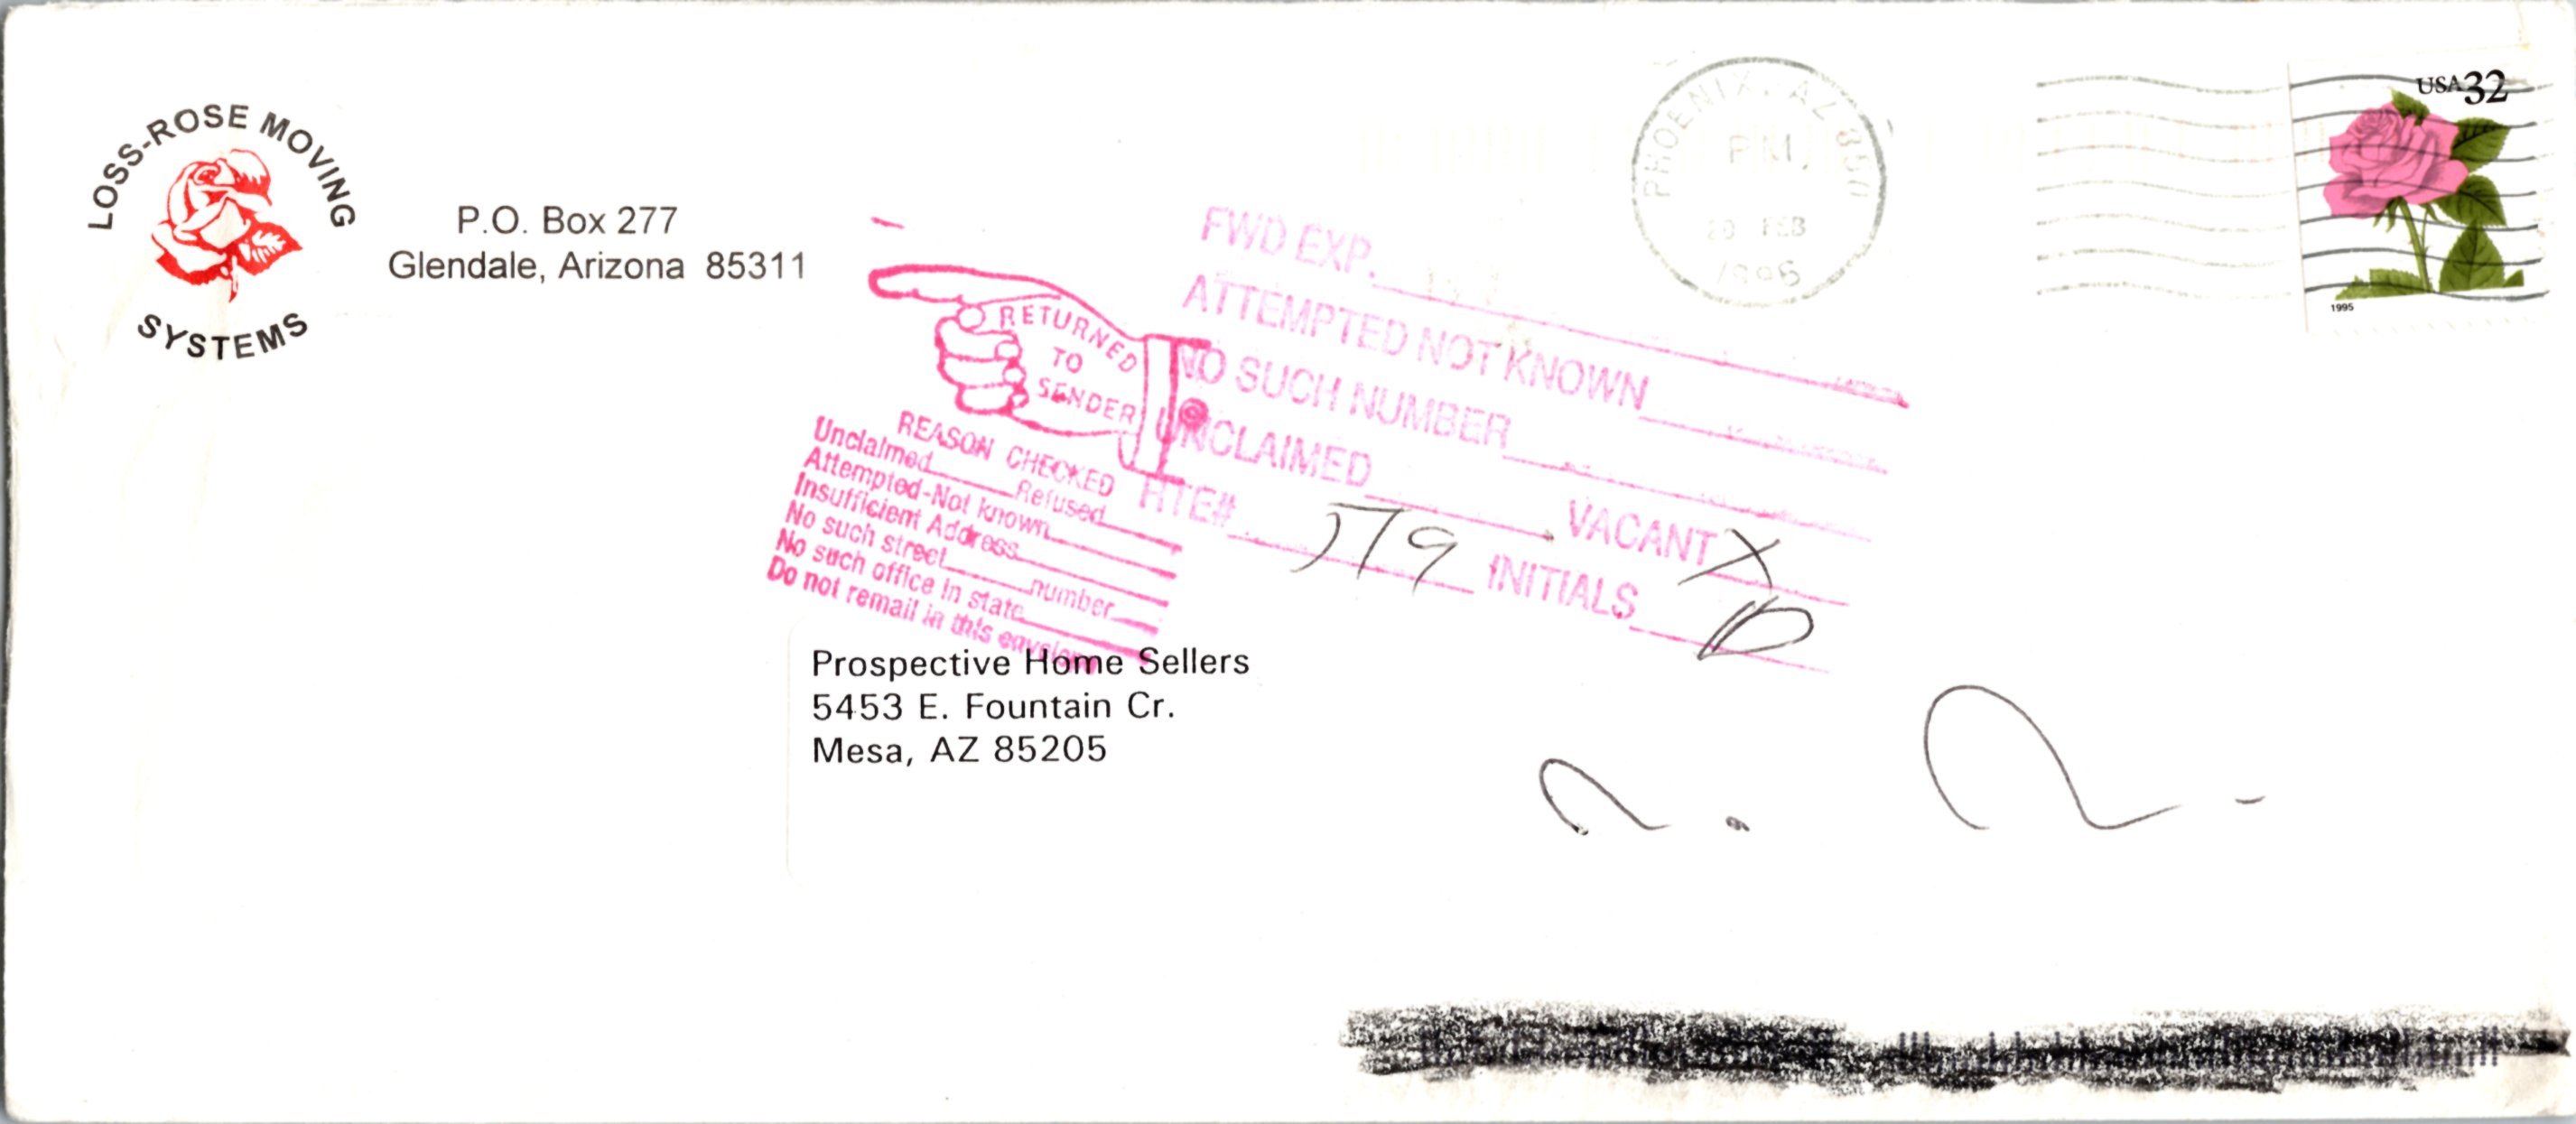 LOSS-ROSE MOVING
SYSTEMS
P.O. Box 277
Glendale, Arizona 85311
PHOENIX, AZ 850
PM
20 FEB
1996
USA 32
1995
RETURNED
TO
SENDER
REASON CHECKED
Unclaimed Refused
Attempted-Not known
Insufficient Address
No such street number
No such office in state
Do not remail in this envelope
FWD EXP.
ATTEMPTED NOT KNOWN
NO SUCH NUMBER
UNCLAIMED VACANT X
RTE# 579 INITIALS
Prospective Home Sellers
5453 E. Fountain Cr.
Mesa, AZ 85205